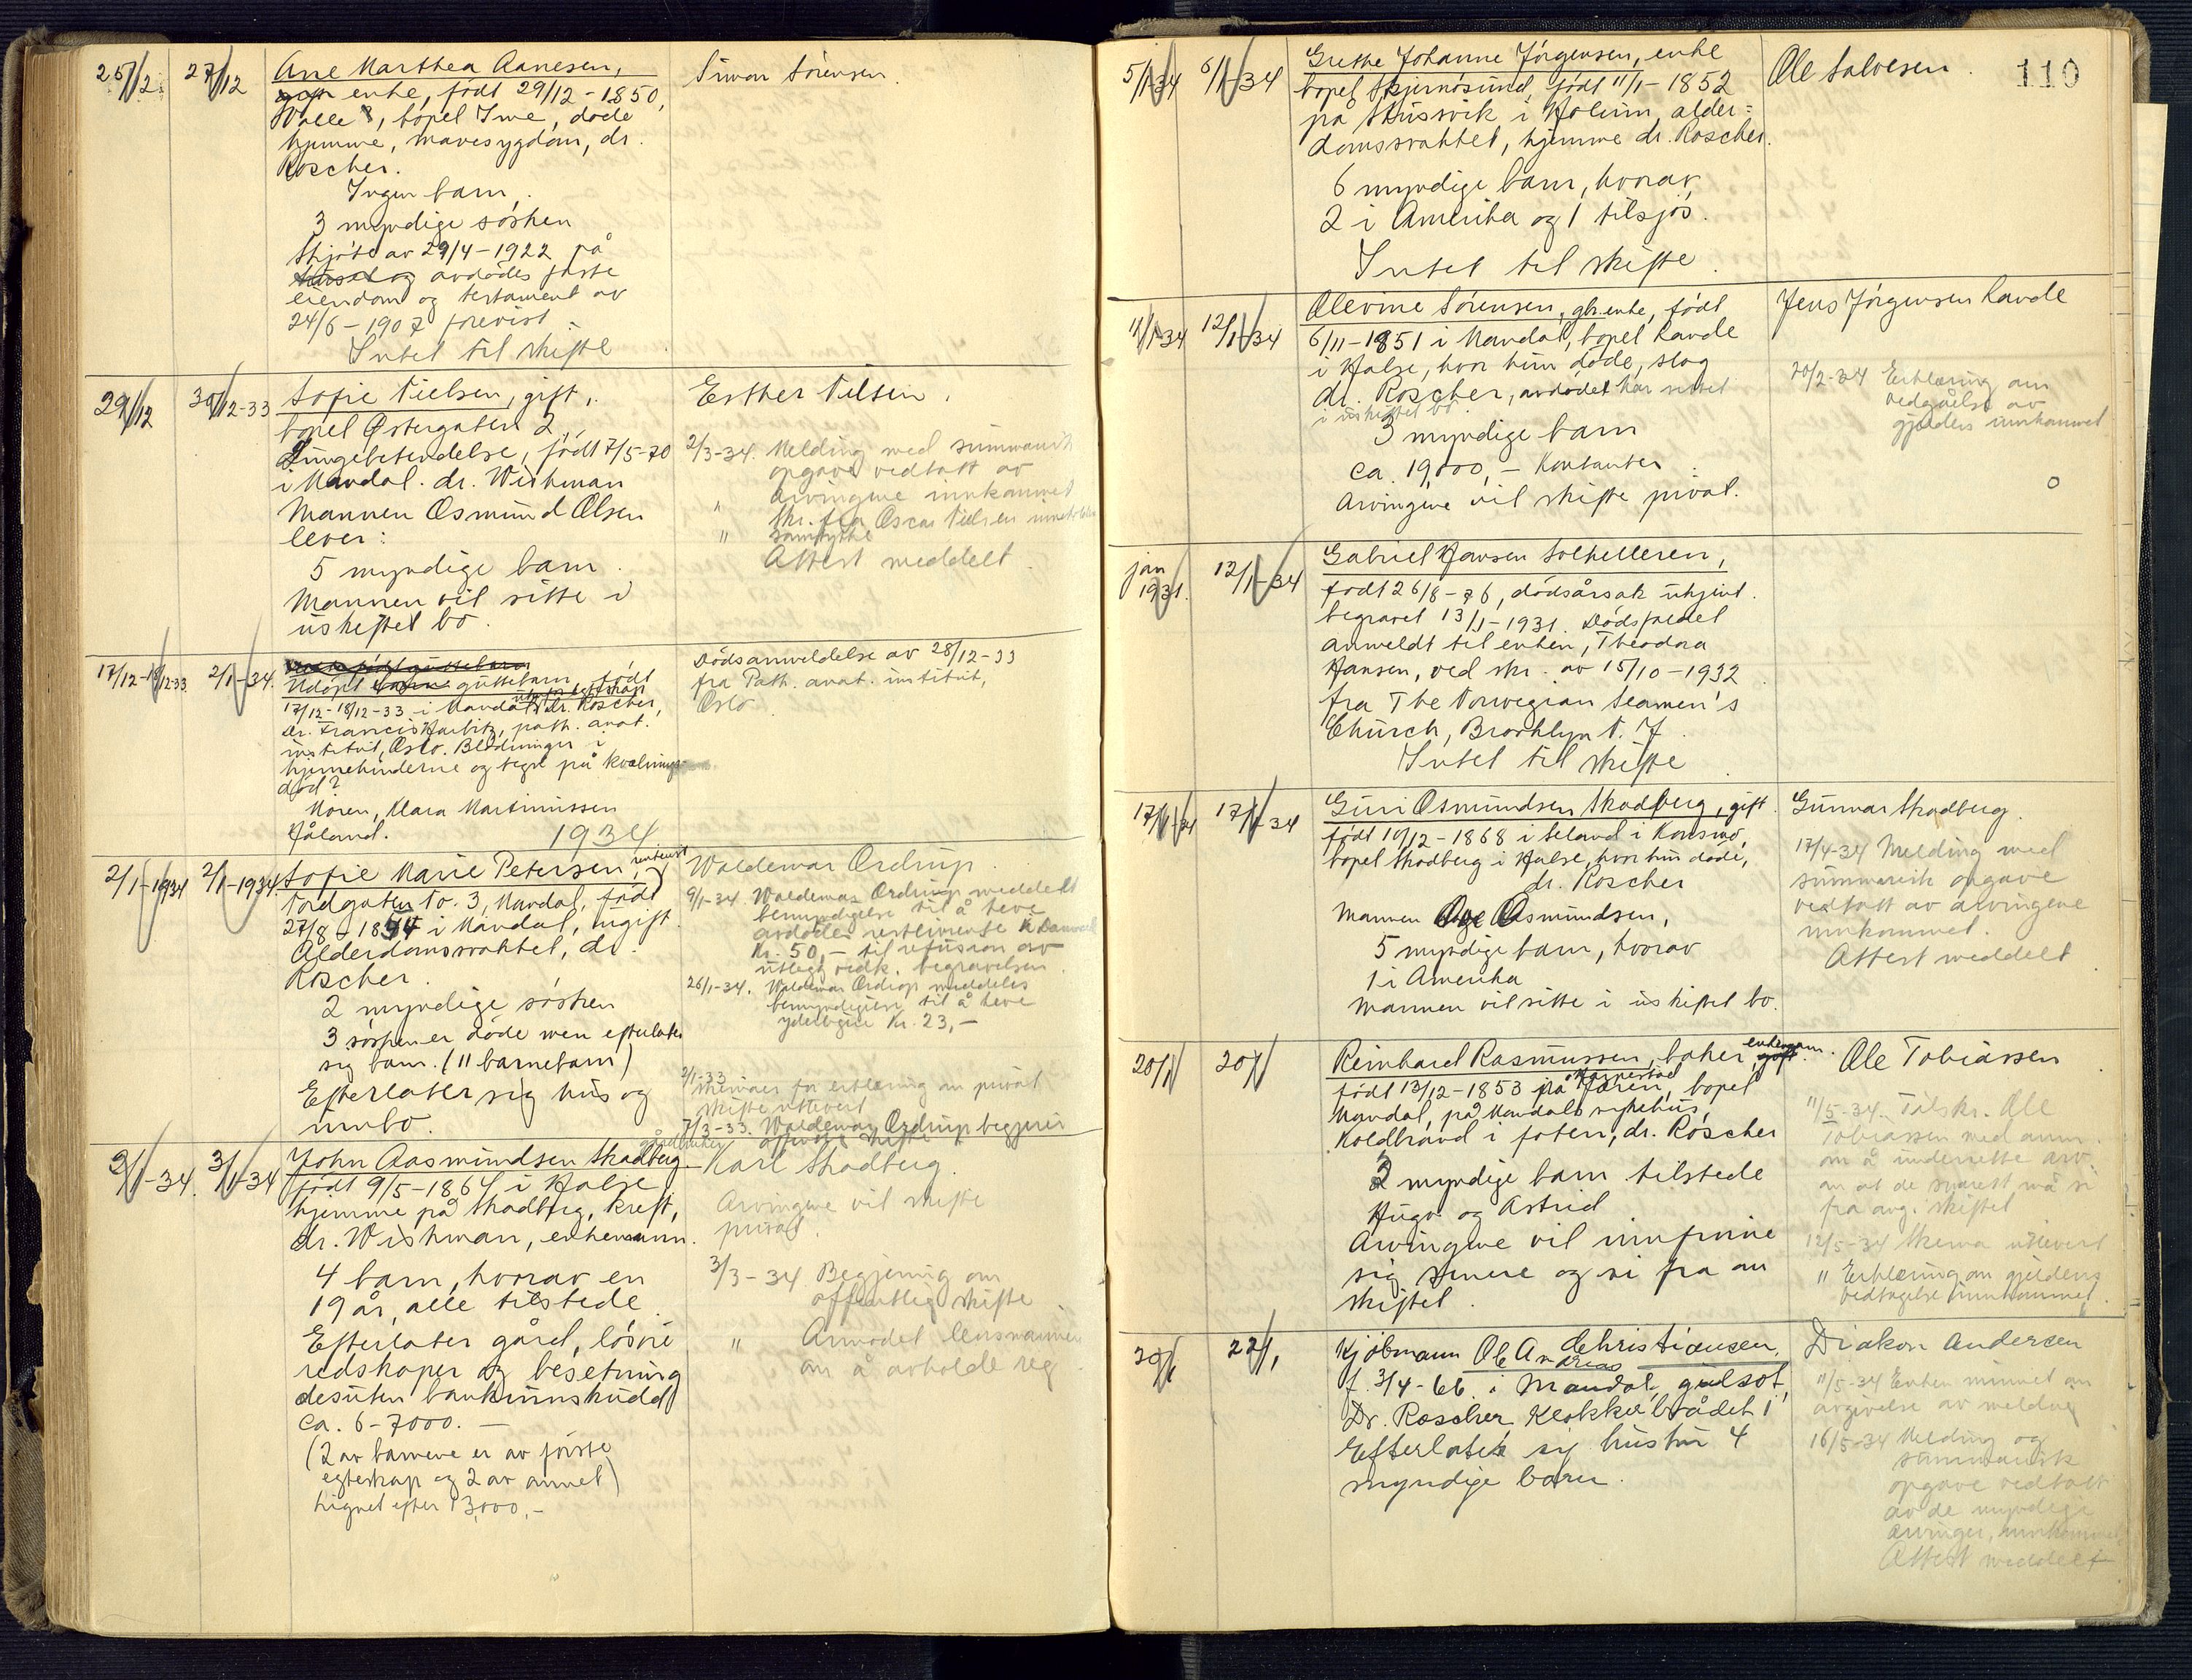 25/12 27/12
Ane Marthea Aanesen,
gift enke, født 29/12-1850,
Valle, bopel Ime, døde
hjemme, mavesygdom, dr.
Roscher.
Ingen barn.
3 myndige søsken
Skjøte av 29/4-1922 på
avdødes faste
eiendom og testament av
24/6-1907 forevist.
Intet til skifte
Simon Sörensen.
29/12 30/12-33
Sofie Nielsen, gift,
bopel Østergaten 2,
Lungebetendelse, født 7/5-70
i Mandal. dr. Wishman
Mannen Osmund Olsen
lever:
5 myndige barn.
Mannen vil sitte i
uskiftet bo.
Esther Nilsen.
2/3-34. Melding med summarisk
opgave vedtatt av
arvingene innkommet
" Skr. fra Oscar Nielsen
" samtykke
Attest meddelt.
17/12-18/12-33 2/1-34.
Udöpt guttebarn, født
17/12-18/12-33 i Mandal, dr. Roscher,
Dr. Francis Harbitz, path. anat.
institut, Oslo. Blødninger i
hjernehinderne og tegn på kvælnings-
død?
Moren, Klara Martinussen
Håland.
Dødsanmeldelse av 28/12-33
fra Path. anat. institut,
Oslo
1934
2/1-1934 2/1-1934
Sofie Marie Petersen, rentenist
Nordgaten No. 3, Mandal, født
27/8-1854 i Mandal, ugift.
Alderdomssvakhet, dr.
Roscher.
2 myndige søsken
3 søsken er døde men efterlater
sig barn. (11 barnebarn)
Efterlater sig hus og
innbo.
Waldemar Ordrup.
9/1-34. Waldemar Ordrup meddelt
bemyndigelse til å heve
avdødes
Kr. 50,- til refusion av
utlegg vedk. begravelsen.
26/1-34. Waldemar Ordrup meddeles
bemyndigelse til å heve
yderligere Kr. 23,-
2/1-33
Skemaer for erklæring om privat
skifte utlevert
7/3-33. Waldemar Ordrup begjærer
offentlig skifte
2/1-34. 3/1-34
gårdbruker
John Aasmundsen Skadberg
født 9/5-1864 i Halse
hjemme på Skadberg, kreft,
dr. Wishman, enkemann.
4 barn, hvorav en
19 år, alle tilstede.
Efterlater gård, løsøre
redskaper og besetning
desuten bankinnskudd
ca. 6-7000.-
(2 av barnene er av første
egteskap og 2 av annet)
lignet efter 13,000.-
Karl Skadberg.
Arvingene vil skifte
privat.
3/3-34 Begjering om
offentlig skifte.
" Anmodet lensmannen
om å avholde reg.
110
5/1-34 6/1-34
Grethe Johanne Jörgensen, enke
bopel Skjernøsund, født 11/1-1852
på Skusvik i Holum, alder-
domssvakhet, hjemme dr. Roscher.
6 myndige barn, hvorav
2 i Amerika og 1 tilsjøs.
Intet til skifte.
Ole Salvesen.
11/1-34 12/1-34
Olevine Sörensen, enke, født
6/11-1851 i Mandal, bopel Lande
i Halse, hvor hun døde, slag
dr. Roscher, avdøde har sittet
i uskiftet bo.
3 myndige barn
ca. 19,000,- Kontanter.
Arvingene vil skifte privat.
Jens Jörgensen Lande
20/2-34 Erklæring om
vedgåelse av
gjelden innkommet
jan 1931. 12/1-34
Gabriel Hansen Solhelleren,
født 26/8-76, dødsårsak ukjent.
begravet 13/1-1931. Dødsfaldet
anmeldt til enken, Theodora
Hansen, ved skr. av 15/10-1932
fra The Norwegian Seamen's
Church, Brooklyn N.Y.
Intet til skifte.
17/1-34 17/1-34
Guri Osmundsen Skadberg, gift
født 19/12-1868 i Seland i Konsmo,
bopel Skadberg i Halse, hvor hun døde,
dr. Roscher
Mannen Åge Osmundsen,
5 myndige barn, hvorav
1 i Amerika
Mannen vil sitte i uskiftet bo.
Gunvar Skadberg.
17/4-34 Melding med
summarisk opgave
vedtatt av arvingene
innkommet.
Attest meddelt.
20/1 20/1
Reinhard Rasmussen, baker enkemann.
født 13/12-1853 på Jæren, bopel
Mandal, på Mandals sykehus,
Koldbrand i foten, dr. Roscher
2 myndige barn tilstede
Hugo og Astrid
Arvingene vil innfinne
sig senere og si fra om
skiftet.
Ole Tobiassen
11/5-34. Tilskr. Ole
Tobiassen med anm.
om å underrette arv.
om at de snarest må si
fra ang. skiftet
12/5-34 Skema utlevert
" Erklæring om gjeldens
vedtagelse innkommet.
20/1 22/1,
Kjöbmann Ole Andreas Christiansen,
f. 3/4-66. i Mandal, gulsot,
Dr. Roscher
Efterlater sig hustru 4
myndige barn.
Diakon Andersen
11/5-34 Enken minnet om
avgivelse av melding
16/5-34 Melding og
summarisk
opgave vedtatt
av de myndige
arvinger, innkommet
Attest meddelt